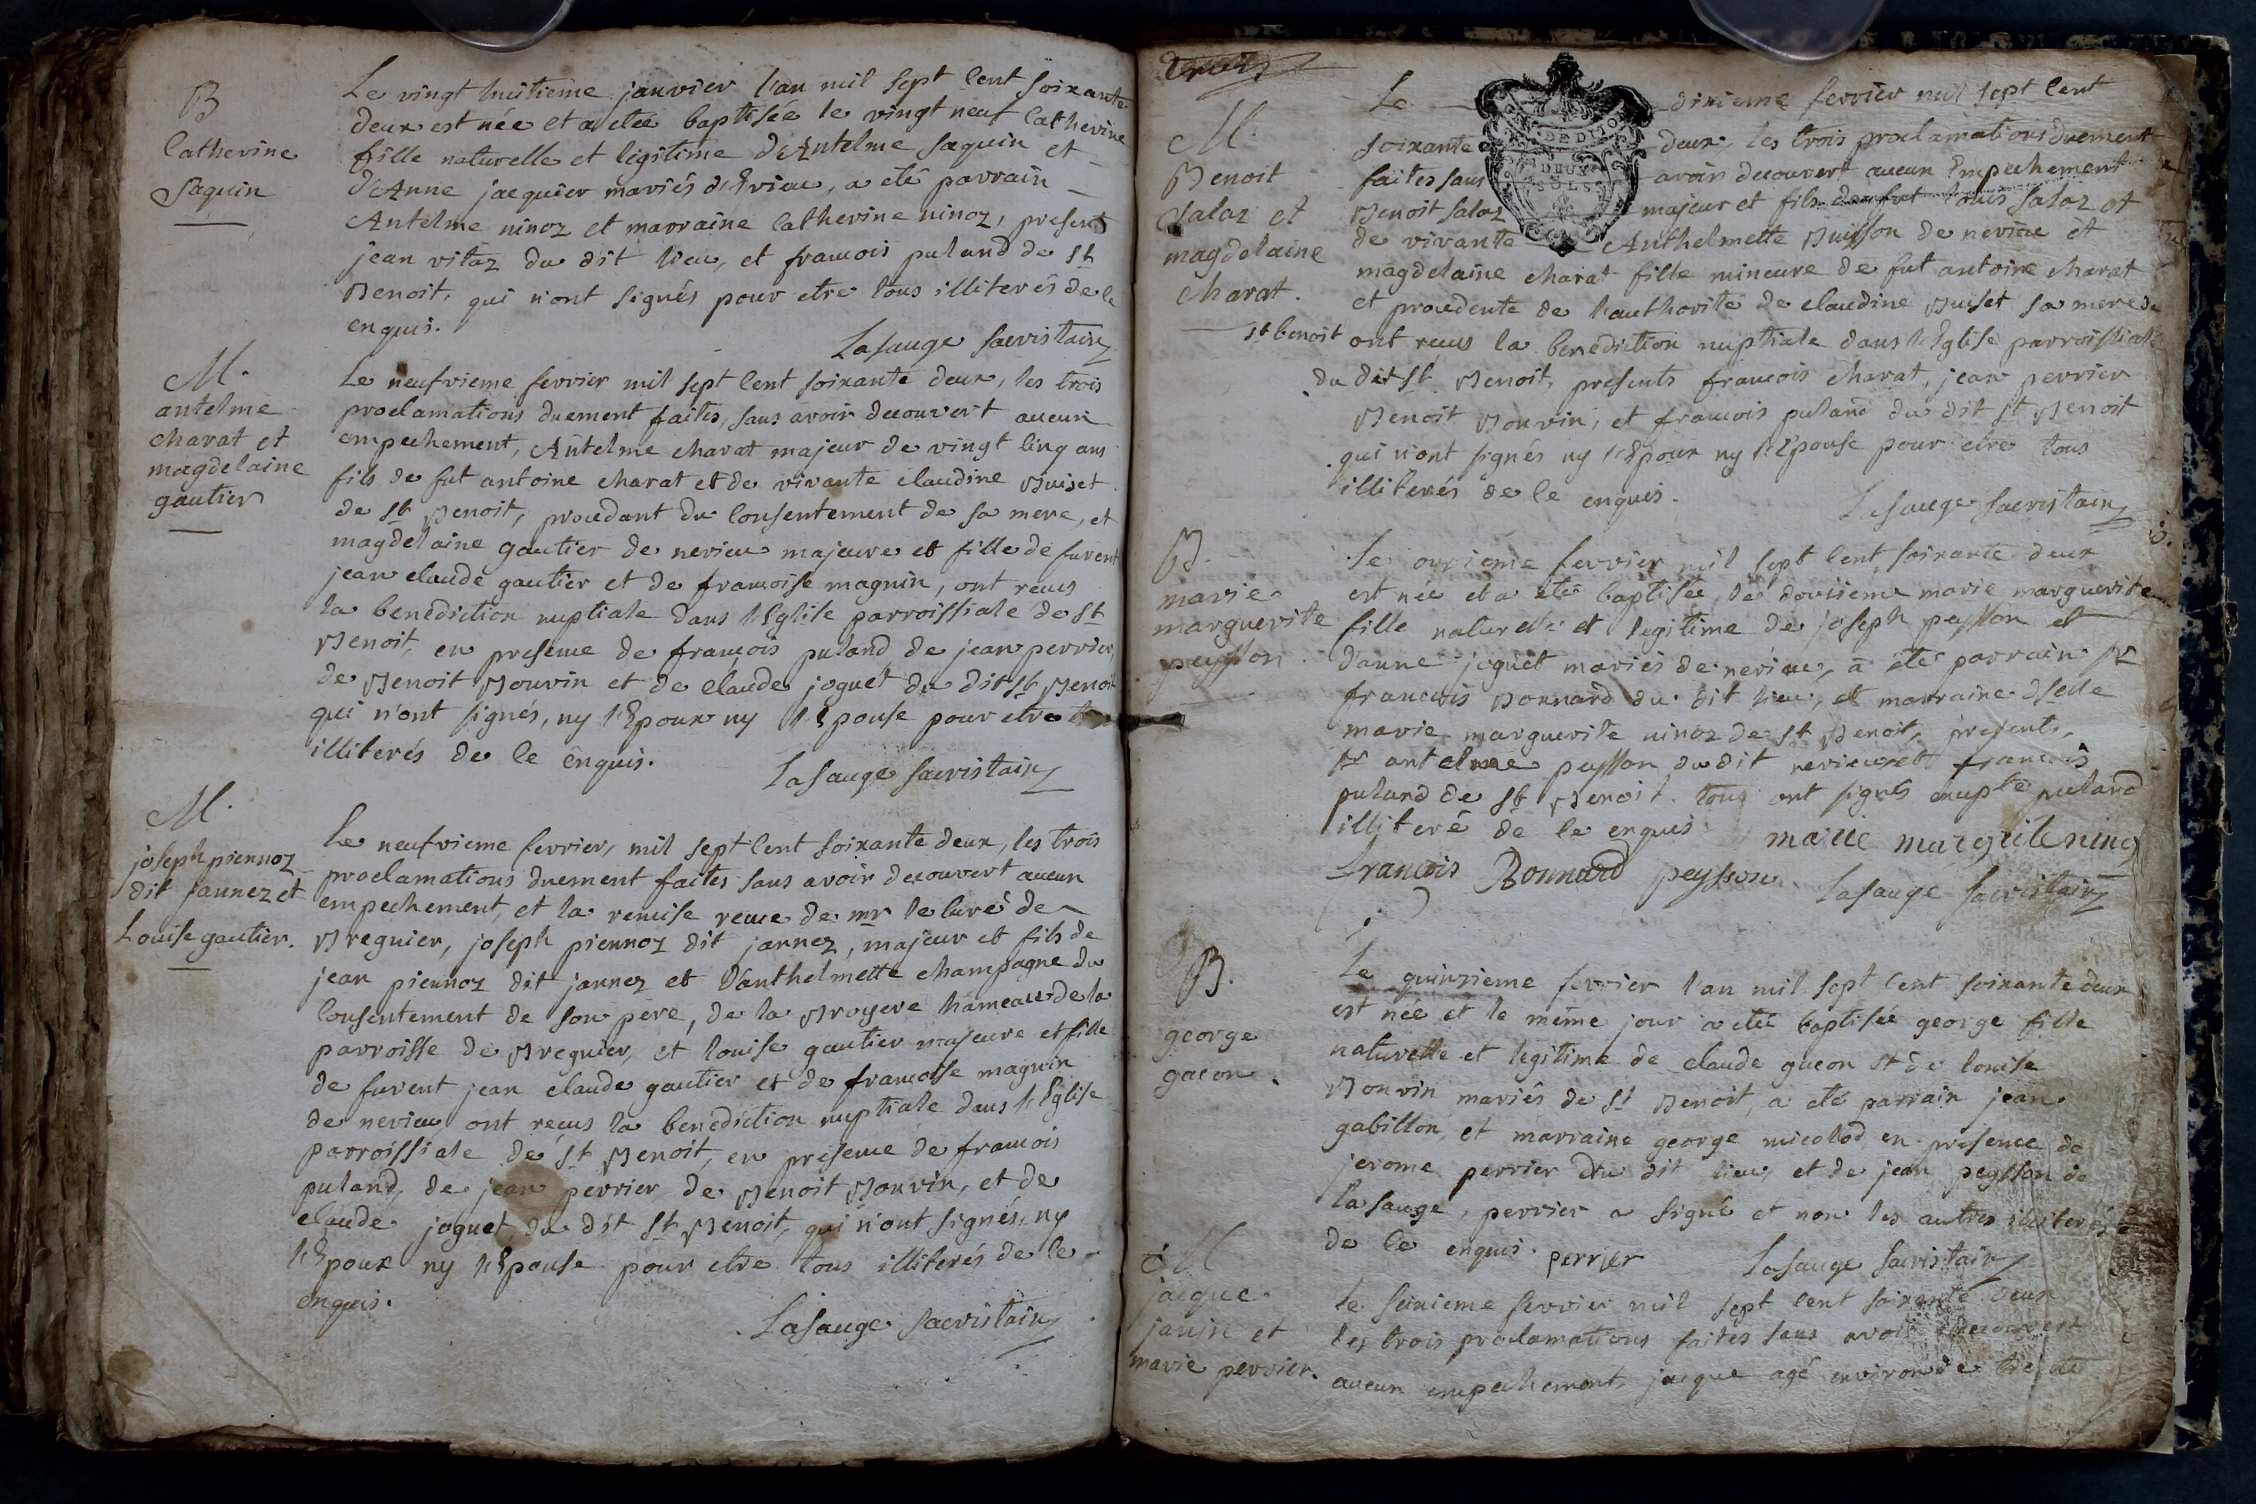 B
Catherine
Saquin
Le vingt huitieme janvier l'an mil sept cent soixante
deux est née et a eteé baptisée le vingt neuf Catherine
fille naturelle et legitime d'Antelme saquin et
d'Anne jacquier mariés d'Evieu, a eté parrain
Antelme ninoz et marraine Catherine ninoz, presents
jean vitaz du dit lieu, et francois puland de St
Benoit, qui n'ont signés pour etre tous illiterés de ce
enquis.
Lasauge sacristain
M.
antelme
charat et
magdelaine
gautier
Le neufvieme fevrier mil sept cent soixante deux, les trois
proclamations duement faites, sans avoir decouvert aucun
empechement, Antelme charat majeur de vingt cinq ans
fils de fut antoine charat et de vivante claudine Buiset
de St Benoit, procedant du consentement de sa mere, et
magdelaine gautier de nevieu majeure et fille de furent
jean claude gautier et de francoise magnin, ont recus
la benediction nuptiale dans l'Eglise parroissiale de St
Benoit, en presence de francois puland de jean perrier,
de Benoit Bouvin et de claude joguet du dit St Benoit
qui n'ont signés, ny l'Epoux ny l'Epouse pour etre
illiterés de ce enquis.
Lasauge sacristain
M.
joseph piennoz
dit jannez et
Louise gautier.
Le neufvieme fevrier, mil sept cent soixante deux, les trois
proclamations duement faites sans avoir decouvert aucun
empechement, et la remise recue de mr le curé de
Bregnier, joseph piennoz dit jannez, majeur et fils de
jean piennoz dit jannez et d'anthelmette champagne du
consentement de son pere, de la Bruyere hameau de la
parroisse de Bregnier, et louise gautier majeure et fille
de furent jean claude gautier et de francoise magnin
de nevieu ont recus la benediction nuptiale dans l'Eglise
parroissiale de St Benoit, en presence de francois
puland, de jean perrier, de Benoit Bouvin, et de
claude joguet, du dit St Benoit, qui n'ont signés, ny
l'Epoux ny l'Epouse pour etre tous illiterés de ce
enquis.
Lasauge sacristain
M.
Benoit
Salaz et
magdelaine
charat.
DEUX
SOLS
Le dixieme fevrier mil sept cent
soixante deux, les trois proclamations duement
faites sans avoir decouvert aucun Empechement
Benoit salaz majeur et fils de fut louis salaz et
de vivante Anthelmette Buisson de nevieu et
magdelaine charat fille mineure de fut antoine charat
et procedente de l'authorité de claudine Buiset sa mere de
st benoit ont recus la benediction nuptiale dans l'Eglise parroissiale
du dit St Benoit, presents francois charat, jean perrier
Benoit Bouvin, et francois puland du dit St Benoit
qui n'ont signés ny l'Epoux ny l'Epouse pour etre tous
illiterés de ce enquis.
Lasauge sacristain
B.
marie
marguerite
peysson.
Le onzieme fevrier mil sept cent soixante deux
est née et a eté baptisée, le douzieme marie marguerite
fille naturelle et legitime de joseph peysson et
d'anne joguet mariés de nevieu, a eté parrain Sr
francois Bonnard du dit lieu, et marraine dselle
marie marguerite ninoz de St Benoit, presents,
Sr antelme peysson du dit nevieu et francois
puland de St Benoit. tous ont signés excepté puland
illiteré de ce enquis
marie margrite ninoz
francois Bonnard peysson Lasauge sacristain
B.
george
gacon.
Le quinzieme fevrier l'an mil sept cent soixante deux
est née et le même jour a eté baptisée george fille
naturelle et legitime de claude gacon et de louise
Bouvin mariés de St Benoit, a eté parrain jean
gabillon, et marraine george micolod, en presence de
jerome perrier du dit lieu, et de jean peysson de
la sauge, perrier a signé et non les autres illiterés
de ce enquis. perrier Lasauge sacristain
M
jacque
janin et
marie perrier.
Le seizieme fevrier mil sept cent soixante deux
les trois proclamations faites sans avoir decouvert
aucun empechement, jacque agé environ de trente